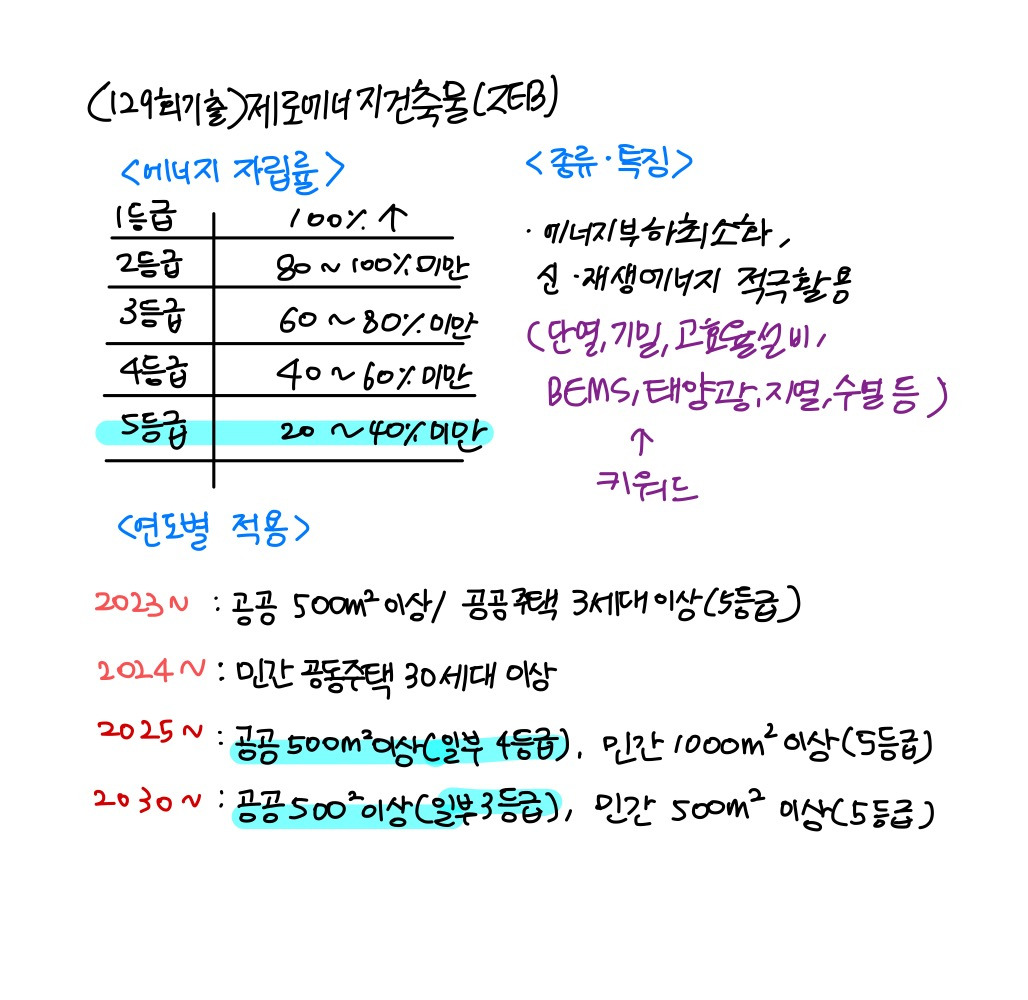 (129회기출)제로에너지건축물(ZEB)
<에너지 자립률>
1등급 100% ↑
2등급 80 ~ 100% 미만
3등급 60 ~ 80% 미만
4등급 40 ~ 60% 미만
5등급 20 ~ 40% 미만
<종류·특징>
· 에너지부하최소화,
신·재생에너지 적극활용
(단열, 기밀, 고효율설비,
BEMS, 태양광, 지열, 수열 등)
↑
키워드
<연도별 적용>
2023~ : 공공 500m² 이상/ 공공주택 3세대 이상(5등급)
2024~ : 민간 공동주택 30세대 이상
2025~ : 공공 500m² 이상(일부 4등급), 민간 1000m² 이상(5등급)
2030~ : 공공 500² 이상(일부 3등급), 민간 500m² 이상(5등급)